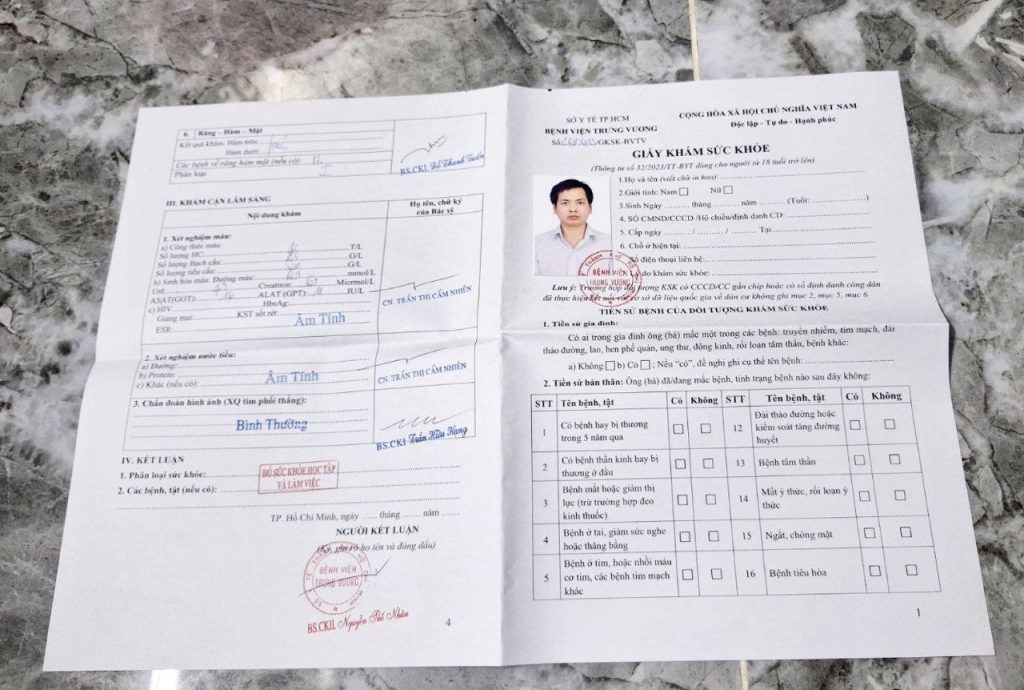 6. Răng – Hàm – Mặt
Kết quả khám: Hàm trên:
Hàm dưới:
Các bệnh về răng hàm mặt (nếu có):
Phân loại I
BS.CKI Đỗ Thanh Tuấn
III. KHÁM CẬN LÂM SÀNG
Nội dung khám
Họ tên, chữ ký của Bác sỹ
1. Xét nghiệm máu:
a) Công thức máu:
Số lượng HC: T/L
Số lượng Bạch cầu: G/L
Số lượng tiểu cầu: G/L
b) Sinh hóa máu: Đường máu: mmol/L
Urê: Creatinin: 63 Micrmol/L
ASAT(GOT): ALAT (GPT): IU/L
c) HIV HbsAg:
Giang mai: KST sốt rét: Âm Tính
ESR:
CN. TRẦN THỊ CẨM NHIÊN
2. Xét nghiệm nước tiểu:
a) Đường:
b) Protein: Âm Tính
c) Khác (nếu có):
CN. TRẦN THỊ CẨM NHIÊN
3. Chẩn đoán hình ảnh (XQ tim phổi thẳng):
Bình Thường
BS.CKI Trần Hữu Hang
IV. KẾT LUẬN
1. Phân loại sức khỏe:
ĐỦ SỨC KHỎE HỌC TẬP
VÀ LÀM VIỆC
2. Các bệnh, tật (nếu có):
TP. Hồ Chí Minh, ngày ..... tháng ..... năm ......
NGƯỜI KẾT LUẬN
(Ký, ghi rõ họ tên và đóng dấu)
BỆNH VIỆN
TRƯNG VƯƠNG
BS.CKII. Nguyễn Thế Nhân
4
SỞ Y TẾ TP.HCM
BỆNH VIỆN TRƯNG VƯƠNG
Số: /GKSK-BVTV
CỘNG HÒA XÃ HỘI CHỦ NGHĨA VIỆT NAM
Độc lập - Tự do - Hạnh phúc
GIẤY KHÁM SỨC KHỎE
(Thông tư số 32/2023/TT-BYT dùng cho người từ 18 tuổi trở lên)
1.Họ và tên (viết chữ in hoa):
2.Giới tính: Nam □ Nữ □
3.Sinh Ngày ........ tháng ........ năm ........ (Tuổi: ........)
4. SỐ CMND/CCCD /Hộ chiếu/định danh CD:
5. Cấp ngày ...... / ...... / ...... Tại
6. Chỗ ở hiện tại:
Số điện thoại liên hệ:
Lý do khám sức khỏe:
BỆNH VIỆN
TRƯNG VƯƠNG
Lưu ý: Trường hợp đối tượng KSK có CCCD/CC gắn chip hoặc có số định danh công dân
đã thực hiện kết nối với cơ sở dữ liệu quốc gia về dân cư không ghi mục 2, mục; 5, mục 6
TIỀN SỬ BỆNH CỦA ĐỐI TƯỢNG KHÁM SỨC KHỎE
1. Tiền sử gia đình:
Có ai trong gia đình ông (bà) mắc một trong các bệnh: truyền nhiễm, tim mạch, đái
tháo đường, lao, hen phế quản, ung thư, động kinh, rối loạn tâm thần, bệnh khác:
a) Không □ b) Có □ ; Nếu “có”, đề nghị ghi cụ thể tên bệnh:
2. Tiền sử bản thân: Ông (bà) đã/đang mắc bệnh, tình trạng bệnh nào sau đây không:
STT Tên bệnh, tật Có Không STT Tên bệnh, tật Có Không
1 Có bệnh hay bị thương trong 5 năm qua □ □ 12 Đái tháo đường hoặc kiểm soát tăng đường huyết □ □
2 Có bệnh thần kinh hay bị thương ở đầu □ □ 13 Bệnh tâm thần □ □
3 Bệnh mắt hoặc giảm thị lực (trừ trường hợp đeo kính thuốc) □ □ 14 Mất ý thức, rối loạn ý thức □ □
4 Bệnh ở tai, giảm sức nghe hoặc thăng bằng □ □ 15 Ngất, chóng mặt □ □
5 Bệnh ở tim, hoặc nhồi máu cơ tim, các bệnh tim mạch khác □ □ 16 Bệnh tiêu hóa □ □
1